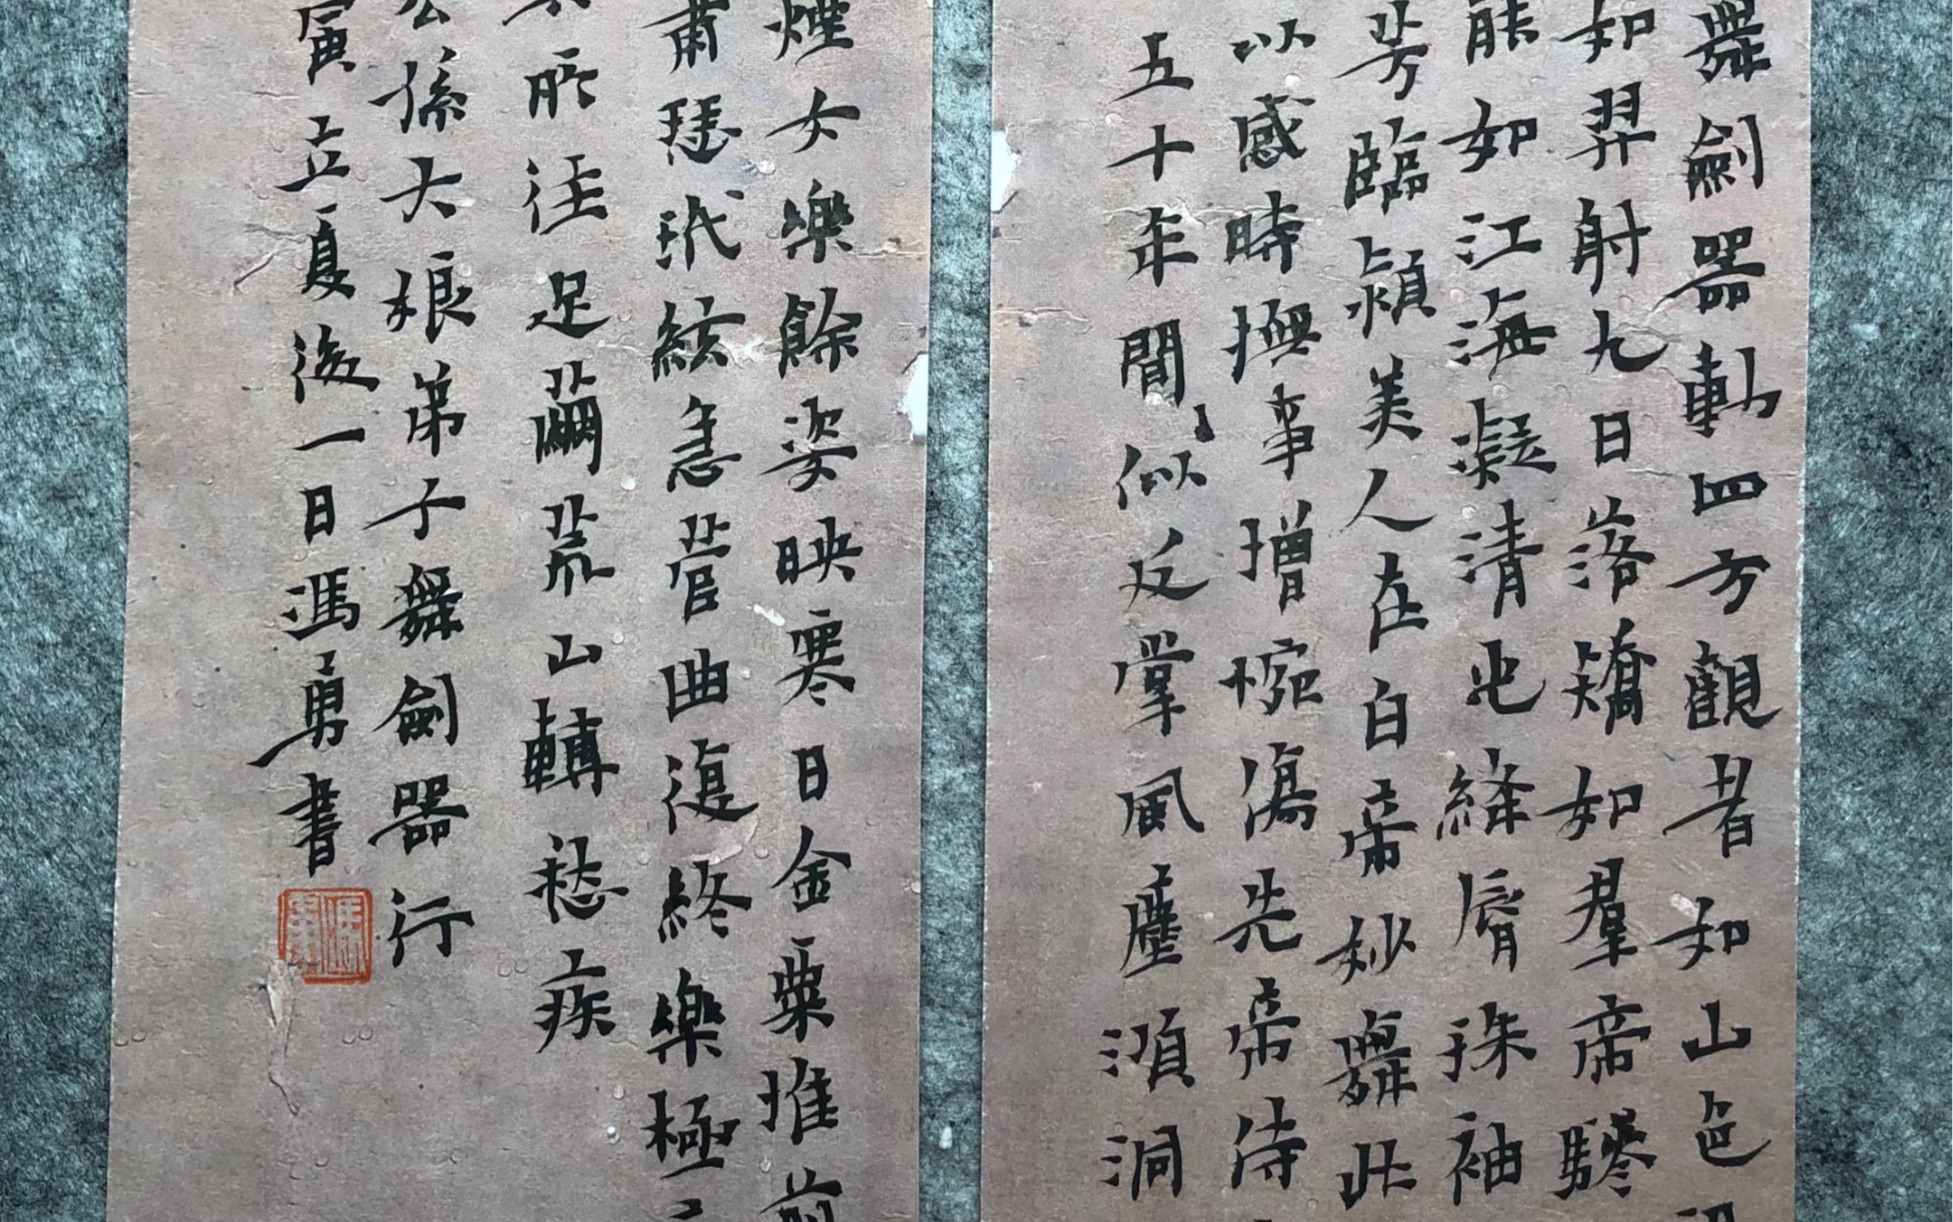 舞劍器動四方觀者如山色
如羿射九日落矯如羣帝驂
如江海凝清光絳脣珠袖
芳臨潁美人在白帝妙舞此
以感時撫事增惋傷先帝侍
五十年間似反掌風塵澒洞
煙女樂餘姿映寒日金粟堆前
瑟玳絃急管曲復終樂極
所往足繭荒山轉愁疾
公孫大娘弟子舞劍器行
寅立夏後一日馮勇書
馮勇